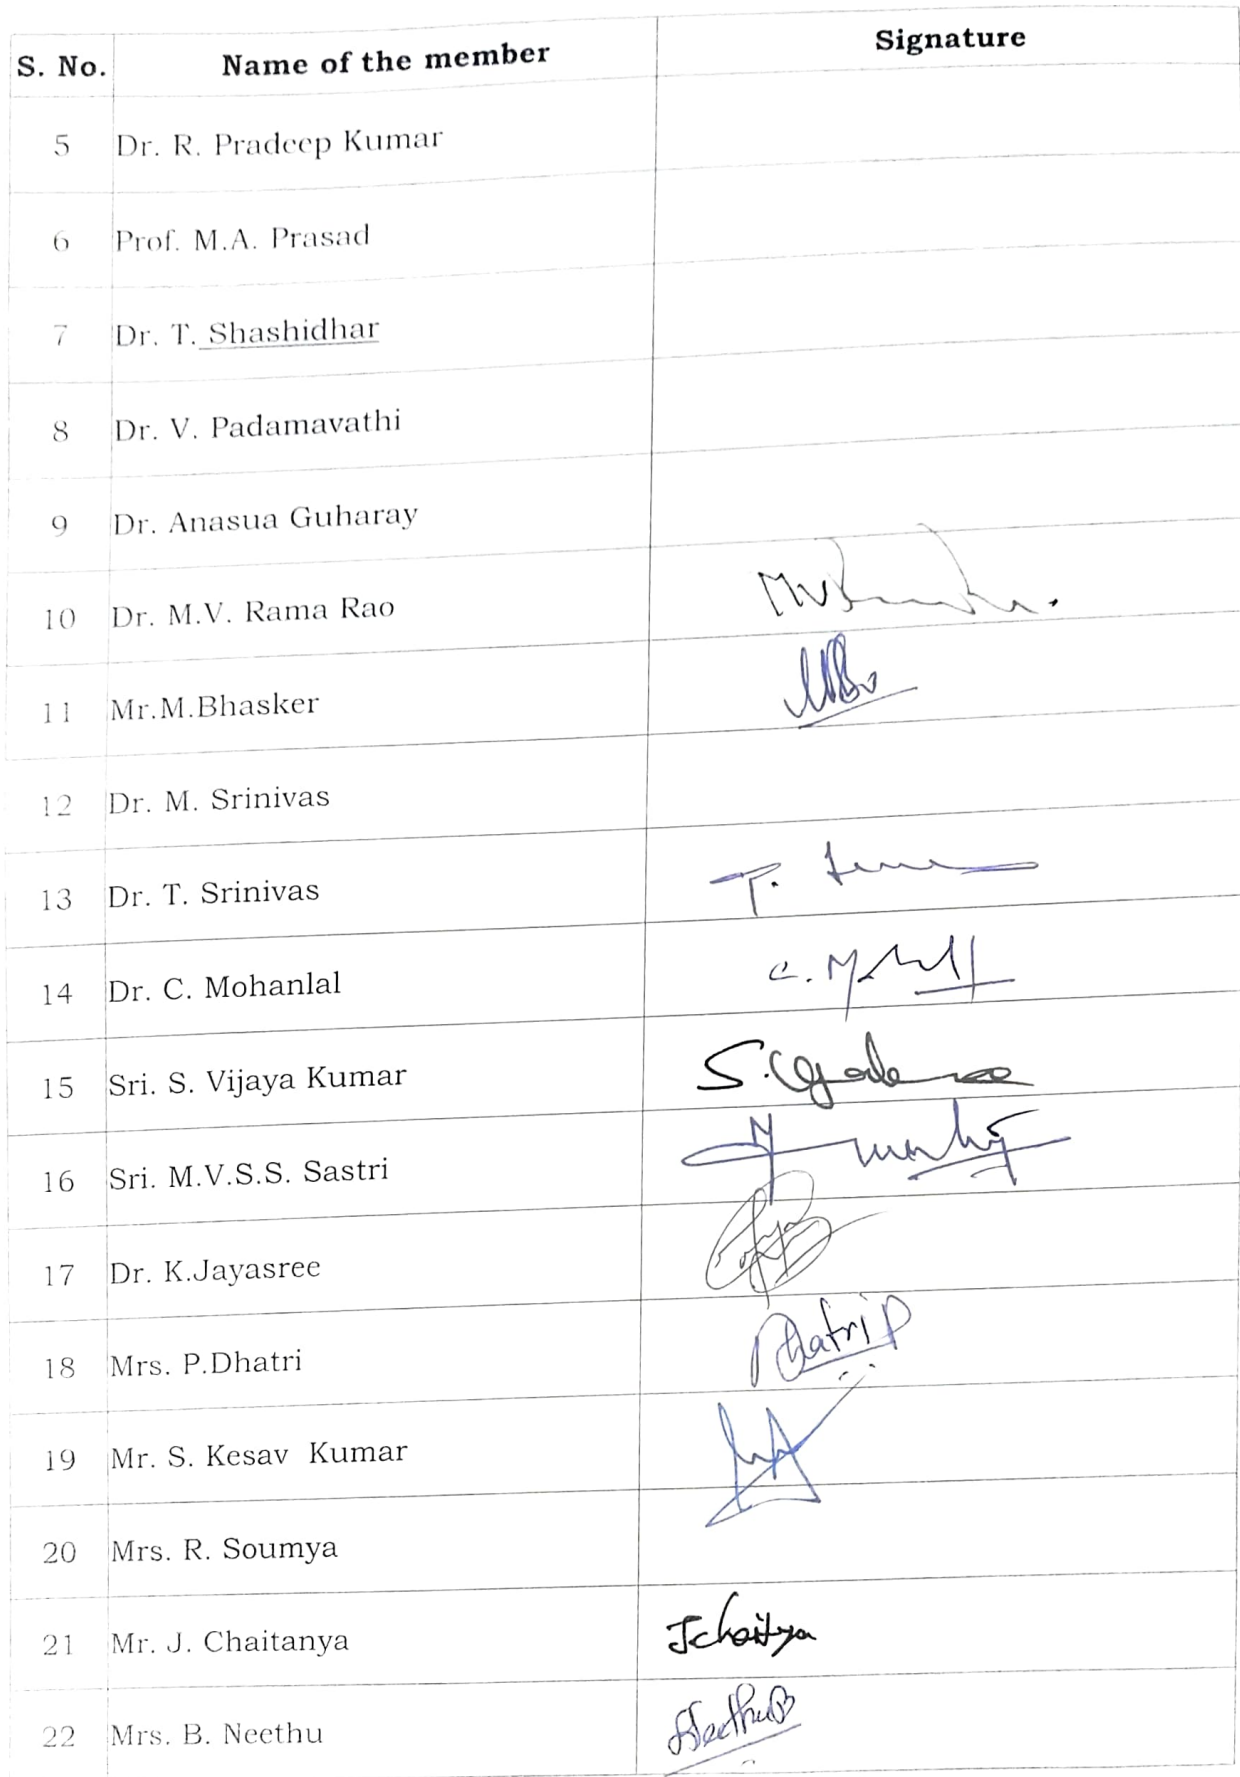 S. No. Name of the member Signature
5 Dr. R. Pradeep Kumar
6 Prof. M.A. Prasad
7 Dr. T. Shashidhar
8 Dr. V. Padamavathi
9 Dr. Anasua Guharay
10 Dr. M.V. Rama Rao
11 Mr.M.Bhasker
12 Dr. M. Srinivas
13 Dr. T. Srinivas
14 Dr. C. Mohanlal
15 Sri. S. Vijaya Kumar
16 Sri. M.V.S.S. Sastri
17 Dr. K.Jayasree
18 Mrs. P.Dhatri Dhatri P
19 Mr. S. Kesav Kumar
20 Mrs. R. Soumya
21 Mr. J. Chaitanya
22 Mrs. B. Neethu